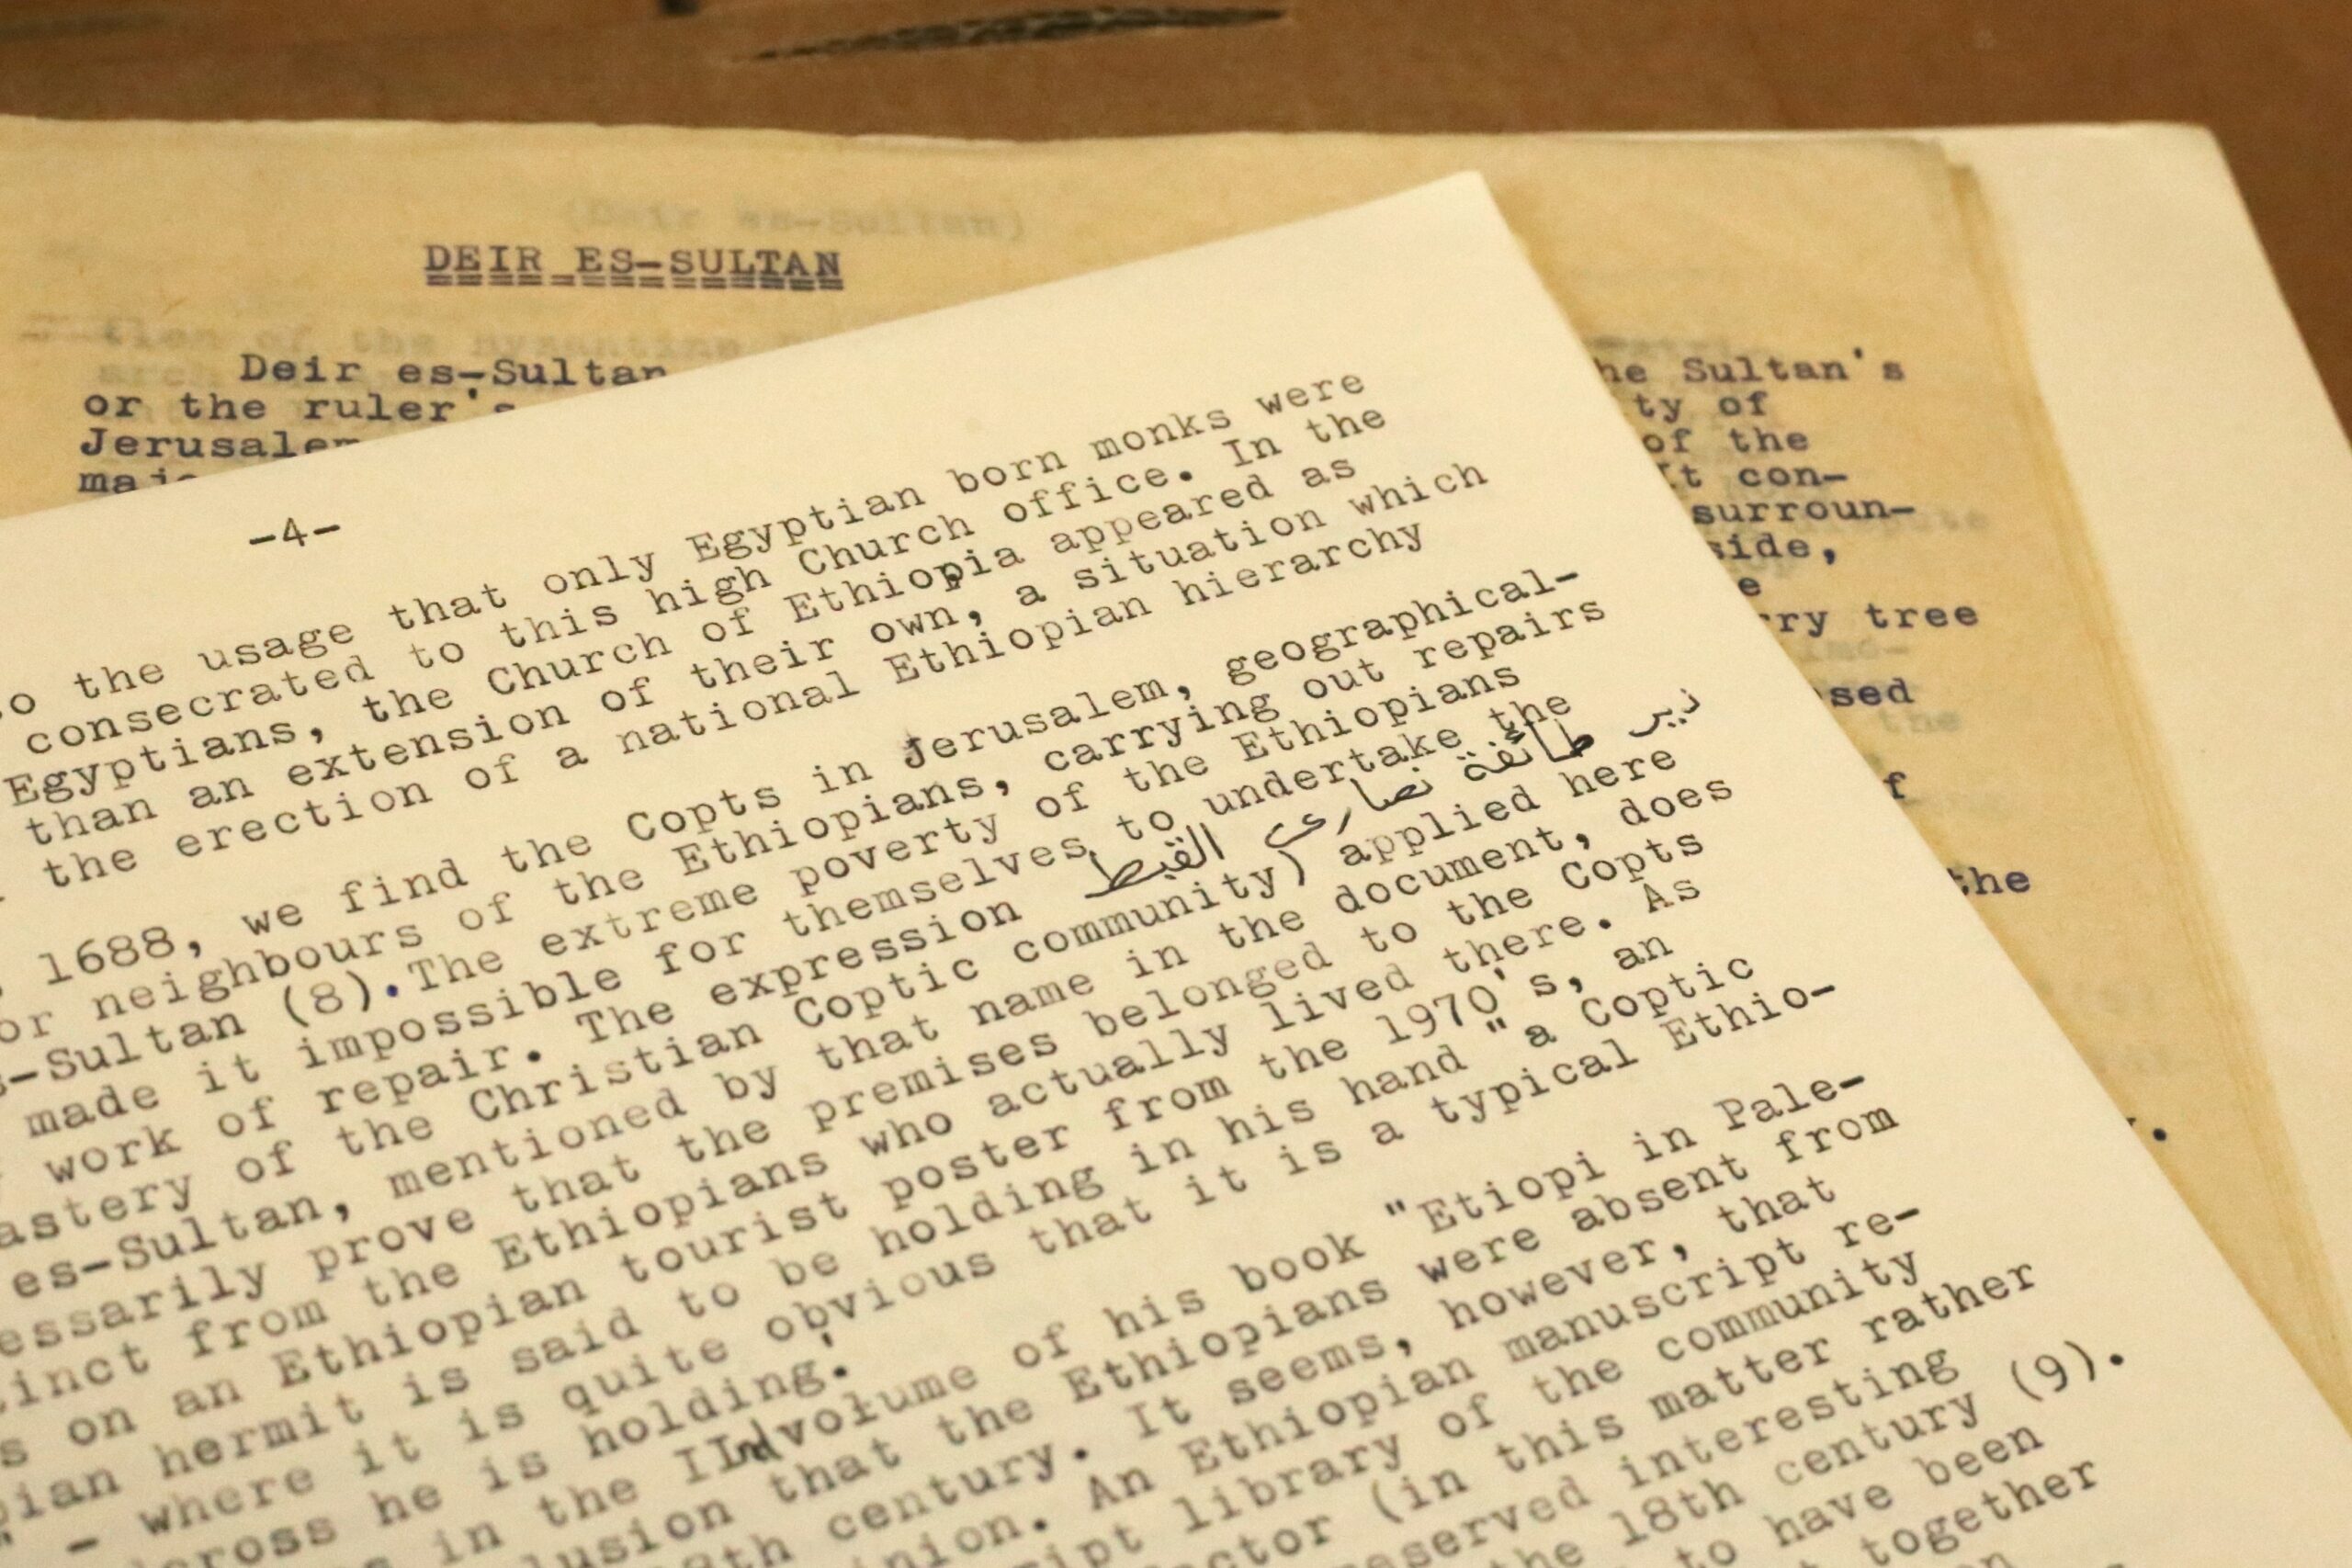 (Deir es-Sultan)
DEIR ES-SULTAN
Deir es-Sultan
or the ruler's
Jerusalem
he Sultan's
ty of
of the
It con-
surroun-
side,
e
rry tree
sed
f
the
-4-
o the usage that only Egyptian born monks were
consecrated to this high Church office. In the
Egyptians, the Church of Ethiopia appeared as
than an extension of their own, a situation which
the erection of a national Ethiopian hierarchy
1688, we find the Copts in Jerusalem, geographical-
or neighbours of the Ethiopians, carrying out repairs
s-Sultan (8).The extreme poverty of the Ethiopians
made it impossible for themselves to undertake the
work of repair. The expression دير طائفة نصارى القبط
astery of the Christian Coptic community) applied here
es-Sultan, mentioned by that name in the document, does
essarily prove that the premises belonged to the Copts
tinct from the Ethiopians who actually lived there. As
s on an Ethiopian tourist poster from the 1970's, an
pian hermit is said to be holding in his hand "a Coptic
" - where it is quite obvious that it is a typical Ethio-
cross he is holding.
in the IInd volume of his book "Etiopi in Pale-
lusion that the Ethiopians were absent from
century. It seems, however, that
inion. An Ethiopian manuscript re-
ript library of the community
ctor (in this matter rather
eserved interesting
the 18th century (9).
to have been
together